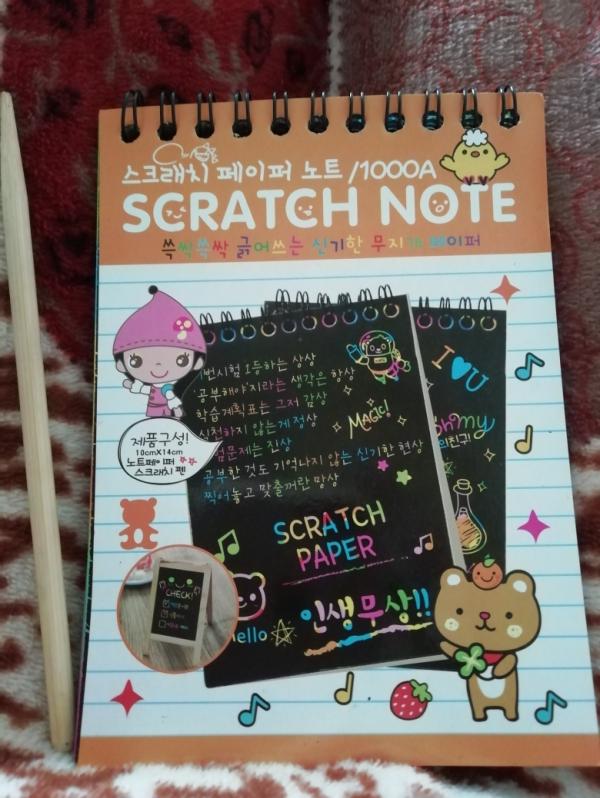 스크래치 페이퍼 노트 /1000A
SCRATCH NOTE
쓱싹쓱싹 긁어쓰는 신기한 무지개 페이퍼
번시험 1등하는 상상
'공부해야'지라는 생각은 항상
학습계획표는 그저 감상
실천하지 않는게 정상
험문제는 진상
공부한 것도 기억나지 않는 신기한 현상
찍어놓고 맞출꺼란 망상
MAGIC!
SCRATCH
PAPER
인생무상!!
hello
I U
ohmy
의친구!
제품구성!
10cmX14cm
노트페이퍼
스크래치 펜
CHECK!